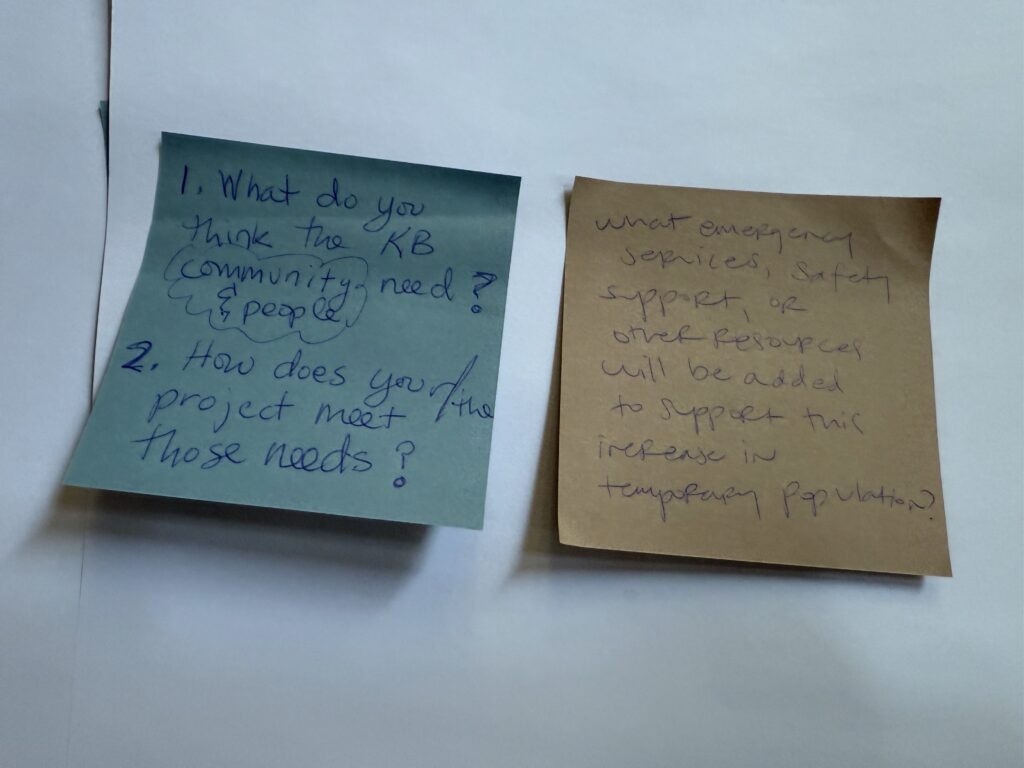 1. What do you
think the KB
community need?
& people
2. How does your/the
project meet
those needs?
what emergency
services, safety
support, or
other resources
will be added
to support this
increase in
temporary population?